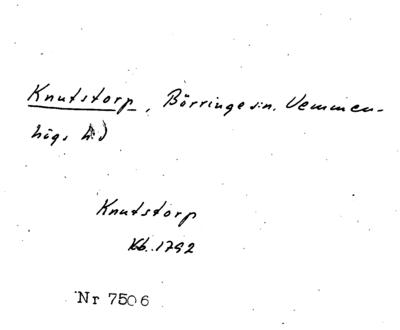 Knutstorp, Börringe sn. Vemmen-
högs hd
Knutstorp
Kb. 1792
Nr 7506